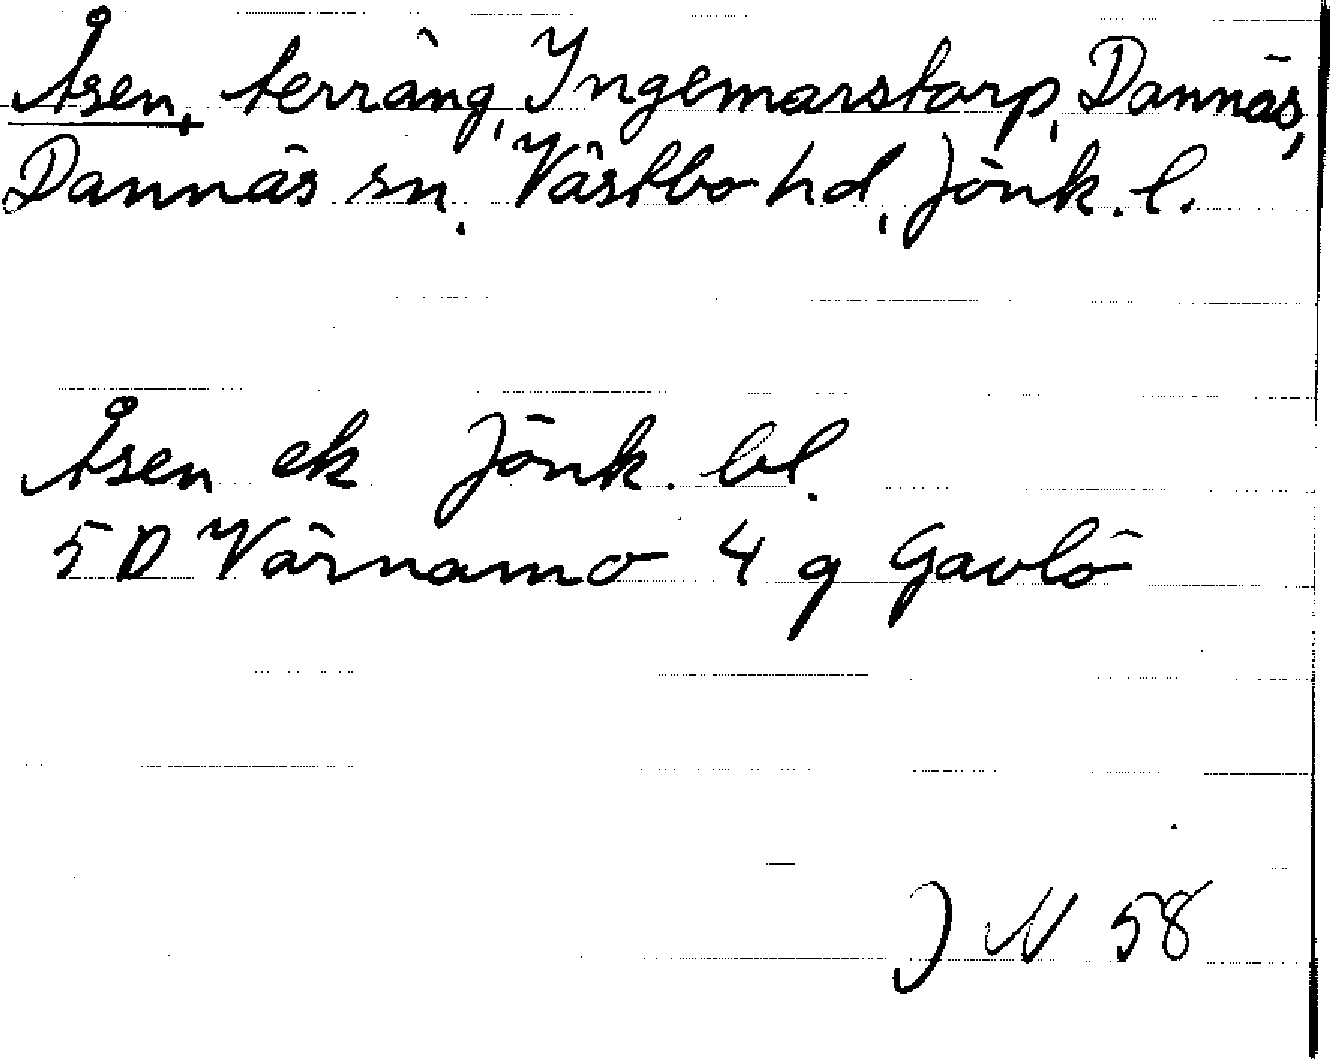 Åsen, terräng, Ingemarstorp, Dannäs,
Dannäs sn, Västbo hd, Jönk. l.
Åsen ek Jönk. bl.
5 D Värnamo 4 g Gavlö
J N 58